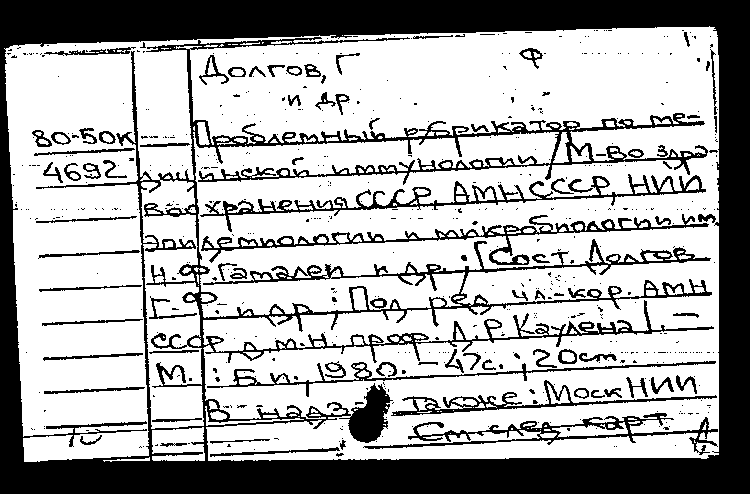 Долгов, Г Ф
и др.
80-50к Проблемный рубрикатор по ме-
4692 дицинской иммунологии / М-во здра-
воохранения СССР, АМН СССР, НИИ
эпидемиологии и микробиологии им.
Н.Ф. Гамалеи и др. ; [Сост. Долгов
Г.Ф. и др ; Под ред. чл.-кор. АМН
СССР, д.м.н., проф. Д.Р. Каулена]. –
М. : Б.и., 1980. – 47с. ; 20см.
В надзаг. также : Моск НИИ
См. след. карт.
Д